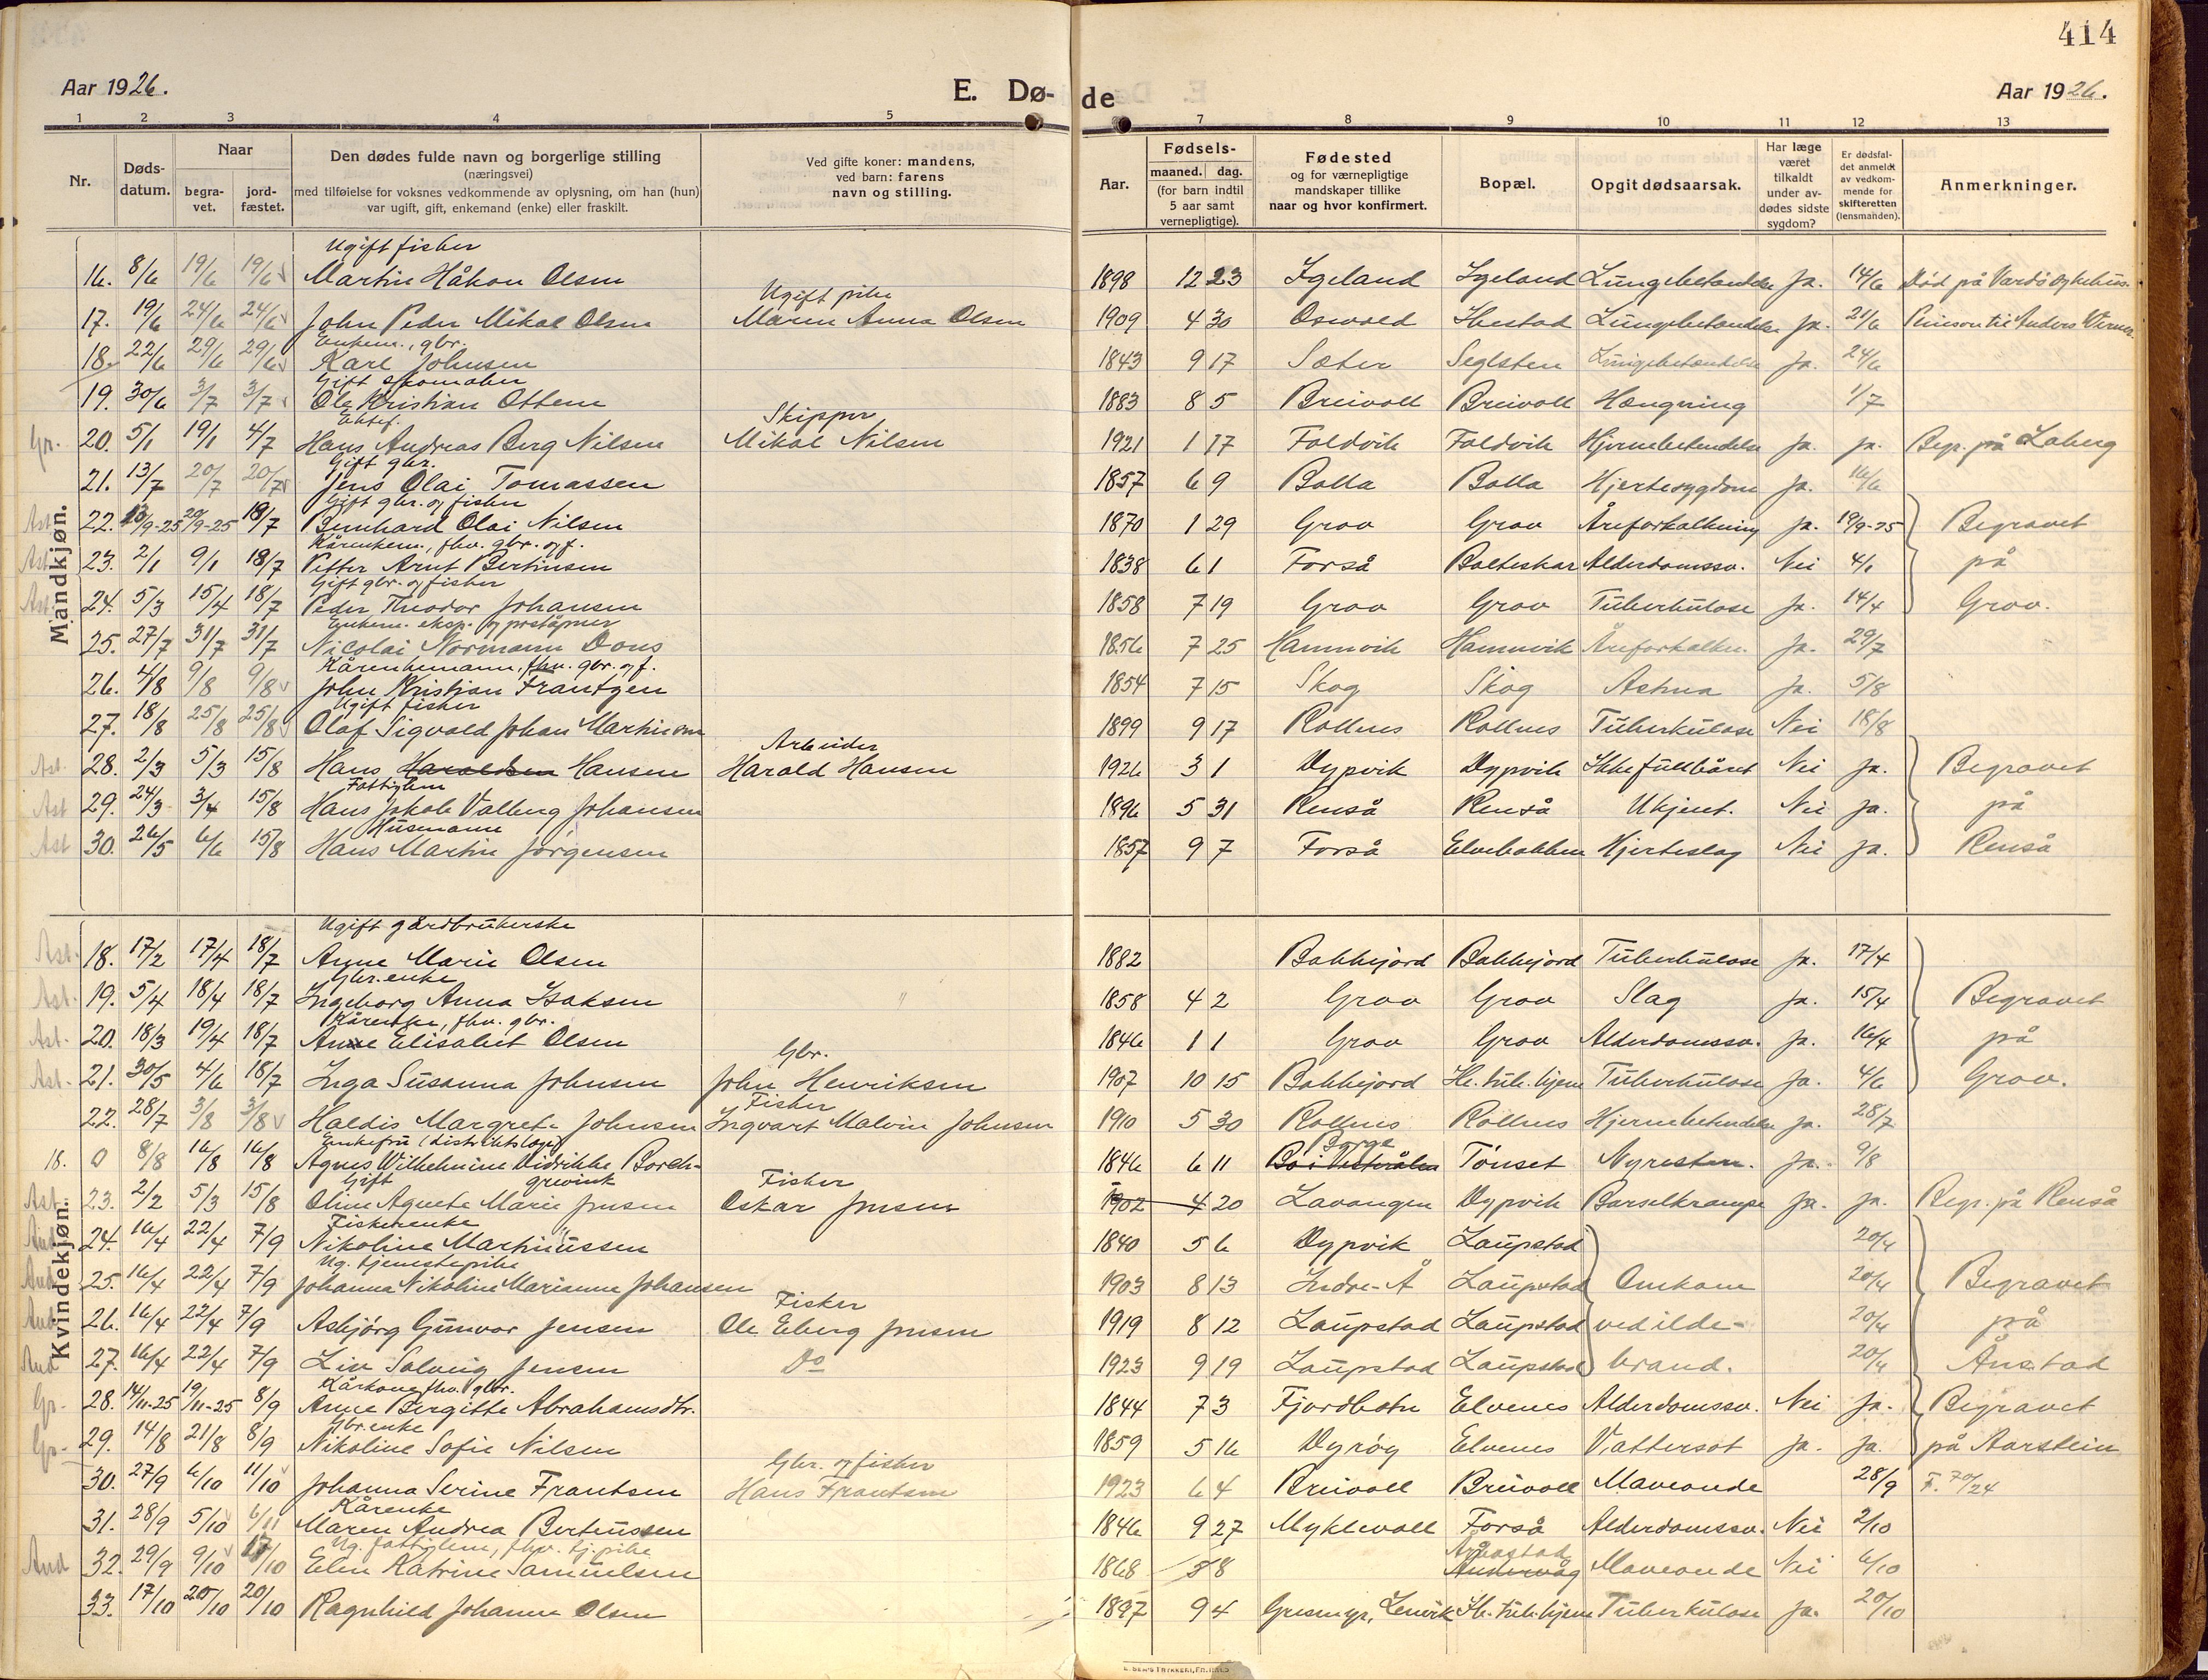 414
Aar 1926.
E. Dø-
de
Aar 1926.
1 2 3 4 5 7 8 9 10 11 12 13
Nr.
Døds-datum.
Naar
begra-vet.
jord-fæstet.
Den dødes fulde navn og borgerlige stilling
(næringsvei)
med tilføielse for voksnes vedkommende av oplysning, om han (hun)
var ugift, gift, enkemand (enke) eller fraskilt.
Ved gifte koner: mandens,
ved barn: farens
navn og stilling.
Aar.
Fødsels-
maaned. dag.
(for barn indtil
5 aar samt
vernepligtige).
Fødested
og for værnepligtige
mandskaper tillike
naar og hvor konfirmert.
Bopæl.
Opgit dødsaarsak.
Har læge
været
tilkaldt
under av-
dødes sidste
sygdom?
Er dødsfal-
det anmeldt
av vedkom-
mende for
skifteretten
(lensmanden).
Anmerkninger.
Mandkjøn.
Ugift fisker
16. 8/6 19/6 19/6 Martin Håkon Olsen 1898 12 23 Igeland Igeland Lungebetændelse Ja. 14/6 Død på Vardö sykehus.
Ugift pike
17. 19/6 24/6 24/6 John Peder Mikal Olsen Maren Anna Olsen 1909 4 30 Osvold Ibestad Lungebetændelse Ja. 21/6 Anders
Enkem., gbr.
18. 22/6 29/6 29/6 Karl Johnsen 1843 9 17 Sæter Seglsten Lungebetændelse Ja. 24/6
Gift skomaker
19. 30/6 3/7 3/7 Ole Kristian Ottem 1883 8 5 Breivoll Breivoll Hængning 1/7
Ektef. Skipper
Gr. 20. 5/1 19/1 4/7 Hans Andreas Berg Nilsen Mikal Nilsen 1921 1 17 Foldvik Foldvik Hjernebetendelse Ja. ja. Begr. på Laberg
Gift gbr.
21. 13/7 20/7 20/7 Jens Olai Tomassen 1857 6 9 Bolla Bolla Hjertesygdom Ja. 16/6
Gift gbr. og fisker
Ast. 22. 13/9-25 20/9-25 18/7 Bernhard Olai Nilsen 1870 1 29 Grov Grov Åreforkalkning Ja. 19/9-25 Begravet
Kårenkem., fhv. gbr. og f.
Ast. 23. 2/1 9/1 18/7 Petter Arnt Bertinsen 1838 6 1 Forså Balteskar Alderdomssv. Nei 4/1 på
Gift gbr. og fisker
Ast. 24. 5/3 15/4 18/7 Peder Theodor Johansen 1858 7 19 Grov Grov Tuberkulose Ja. 14/4 Grov.
Enkem. eksp. og poståpner
25. 27/7 31/7 31/7 Nicolai Normann Dons 1856 7 25 Hamnvik Hamnvik Åreforkalkn. Ja. 29/7
Kårenkemann, fhv. gbr. og f.
26. 4/8 9/8 9/8 John Kristian Frantzen 1854 7 15 Skog Skog Astma Ja. 5/8
Ugift fisker
27. 18/8 25/8 25/8 Olaf Sigvald Johan Martinsen 1899 9 17 Rollnes Rollnes Tuberkulose Nei 18/8
Arbeider
Ast. 28. 2/3 5/3 15/8 Hans Haraldsen Hansen Harald Hansen 1926 3 1 Dypvik Dypvik Ikke fullbåret Nei Ja. Begravet
Fattiglem
Ast 29. 24/3 3/4 15/8 Hans Jakob Valberg Johansen 1896 5 31 Renså Renså Ukjent. Nei Ja. på
Husmann
Ast 30. 26/5 6/6 15/8 Hans Martin Jørgensen 1857 9 7 Forså Elvebakken Hjerteslag Nei Ja. Renså
Kvindekjøn.
Ugift gårdbrukerske
Ast. 18. 17/2 17/4 18/7 Anne Marie Olsen 1882 Bakkejord Bakkejord Tuberkulose Ja. 17/4
Gbr.enke
Ast. 19. 5/4 18/4 18/7 Ingeborg Anna Isaksen 1858 4 2 Grov Grov Slag Ja. 15/4 Begravet
Kårenke, fhv. gbr.
Ast. 20. 18/3 19/4 18/7 Anne Elisabet Olsen 1846 1 1 Grov Grov Alderdomssv. Ja. 16/4 på
Gbr.
Ast. 21. 30/5 4/6 18/7 Inga Susanna Johnsen John Henriksen 1907 10 15 Bakkejord Ha. tub. hjem Tuberkulose Ja. 4/6 Grov.
Fisker
22. 28/7 3/8 3/8 Haldis Margrete Johnsen Ingvart Malvin Johnsen 1910 5 30 Rollnes Rollnes Hjernebetendelse Ja. 28/7
Enkefru (distriktslæge)
18. 0 8/8 16/8 16/8 Agnes Wilhelmine Didrikke Borchgrevink 1846 6 11 Bø i Vesterålen Borge Tönset Nyresten. Ja. 9/8
Gift Fisker
Ast. 23. 2/2 5/3 15/8 Oline Agnete Marie Jensen Oskar Jensen 1902 4 20 Lavangen Dypvik Barselkrampe Ja. Ja. Begr. på Renså
Fiskerenke
And. 24. 16/4 22/4 7/9 Nikoline Martinussen 1840 5 6 Dypvik Laupstad 20/4
Ug. tjenestepike
And. 25. 16/4 22/4 7/9 Johanna Nikoline Marianne Johansen 1903 8 13 Indre-Å Laupstad Omkom 20/4 Begravet
Fisker
And. 26. 16/4 22/4 7/9 Asbjörg Gunvor Jensen Ole Eberg Jensen 1919 8 12 Laupstad Laupstad ved ilde- 20/4 på
And 27. 16/4 22/4 7/9 Liv Solveig Jensen Do 1923 9 19 Laupstad Laupstad brand. 20/4 Ånstad
Kårkone, fhv. gbr.
Gr. 28. 14/11-25 19/11-25 8/9 Anne Birgitte Abrahamsdtr. 1844 7 3 Fjordbotn Elvenes Alderdomssv. Nei Ja. Begravet
Gbr.enke
Gr. 29. 14/8 21/8 8/9 Nikoline Sofie Nilsen 1859 5 16 Dyrøy Elvenes Vattersot Ja. Ja. på Aarstein
Gbr. og fisker
30. 27/9 6/10 11/10 Johanna Serine Frantsen Hans Frantsen 1923 6 4 Breivoll Breivoll Maveonde 28/9 F. 70/24
Kårenke
31. 28/9 5/10 6/11 Maren Andrea Bertinussen 1846 9 27 Myklevoll Forså Alderdomssv. Nei 2/10
Ug. fattiglem, fhv. tj. pike
And 32. 29/9 9/10 17/10 Elen Katrine Samuelsen 1868 5 8 Maveonde Nei 6/10
33. 17/10 20/10 20/10 Ragnhild Johanne Olsen 1897 9 4 Grasmyr, Lenvik Ha. tub. hjem Tuberkulose Ja. 20/10